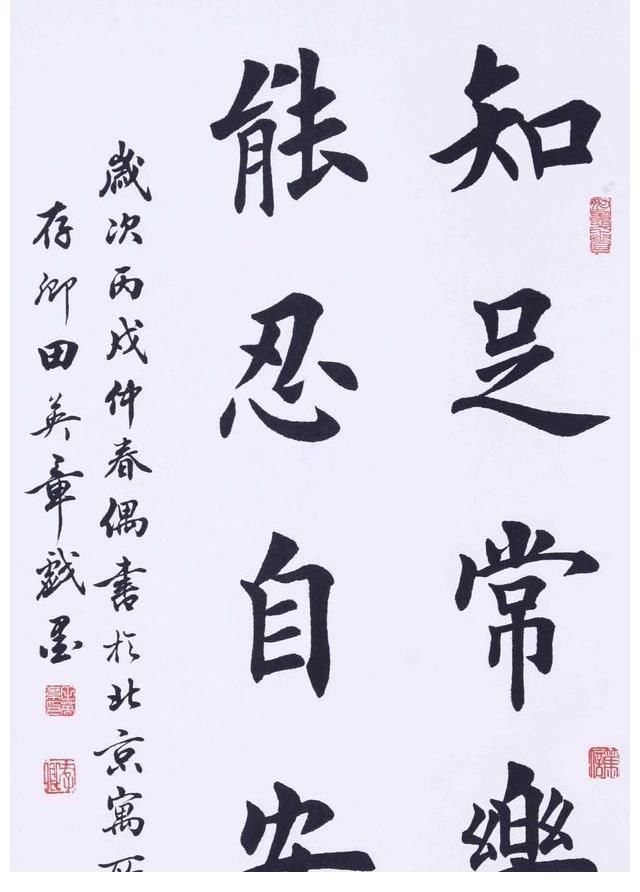 知足常樂
能忍自安
歲次丙戌仲春偶書於北京寓所
存卿田英章戲墨